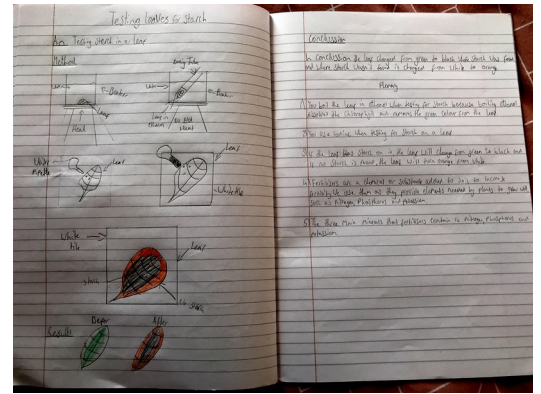 Testing leaves for starch
Aim Testing starch in a leaf
Method
Boiling Tube
Beaker
Leaf
Heat
Leaf in
ethanol
Leaf
Leaf
White tile
White
tile
Leaf
Starch
No starch
Results
Before
After
Conclussion
In Conclussion the leaf changed from green to black where starch was found
and where starch wasn't found it changed from white to orange.
Plenary
1) You boil the leaf in ethanol when testing for starch because boiling ethanol
dissolves the chlorophyll and removes the green colour from the leaf
2) You use iodine when testing for starch on a leaf
3) If the leaf has starch on it the leaf will change from green to black and
if no starch is found the leaf will turn orange from white.
4) Fertilisers are a chemical or substance added to soil to increase
We use them as they provide elements needed by plants to grow well
such as Nitrogen, Phosphorus and potassium
5) The three main minerals that fertilisers contain is Nitrogen, Phosphorus and
potassium